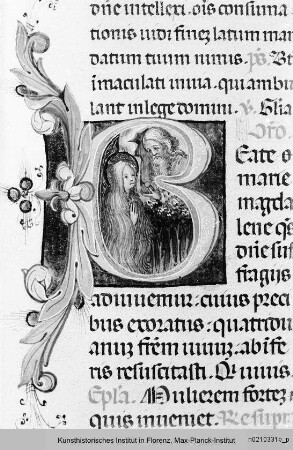 dñe intellexi. oĩs consuma
tionis uidi finez latum man
datum tuum nimis. ps. Bti
inmaculati in uia. qui ambu
lant in lege domini. v. Glia
Oro.
Beate
marie
magda
lene qs
dñe suf
fragijs
adiuuemur: cuius preci
bus exoratus. quatridu
anuz frẽm
ris resuscitasti. Qui uiuis
Epla. Mulierem fortez
quis inueniet. Resup
Kunsthistorisches Institut in Florenz, Max-Planck-Institut